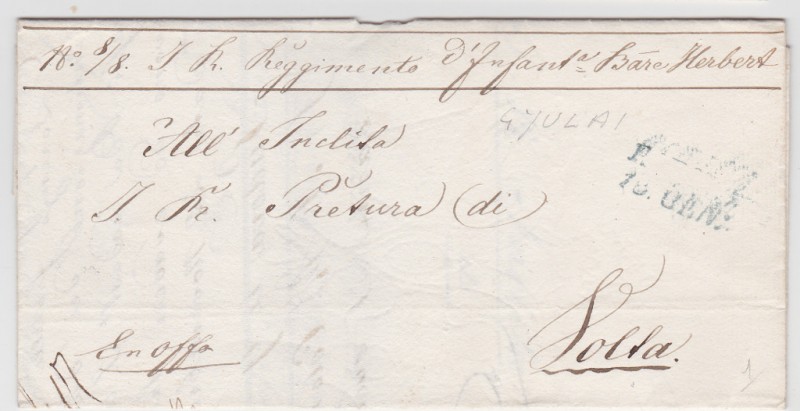 No. 8/8. I. R. Reggimento d'Infantª Bare Herbert
GYULAI
All' Inclita
I. R. Pretura di
GEN.
En offo
Volta.